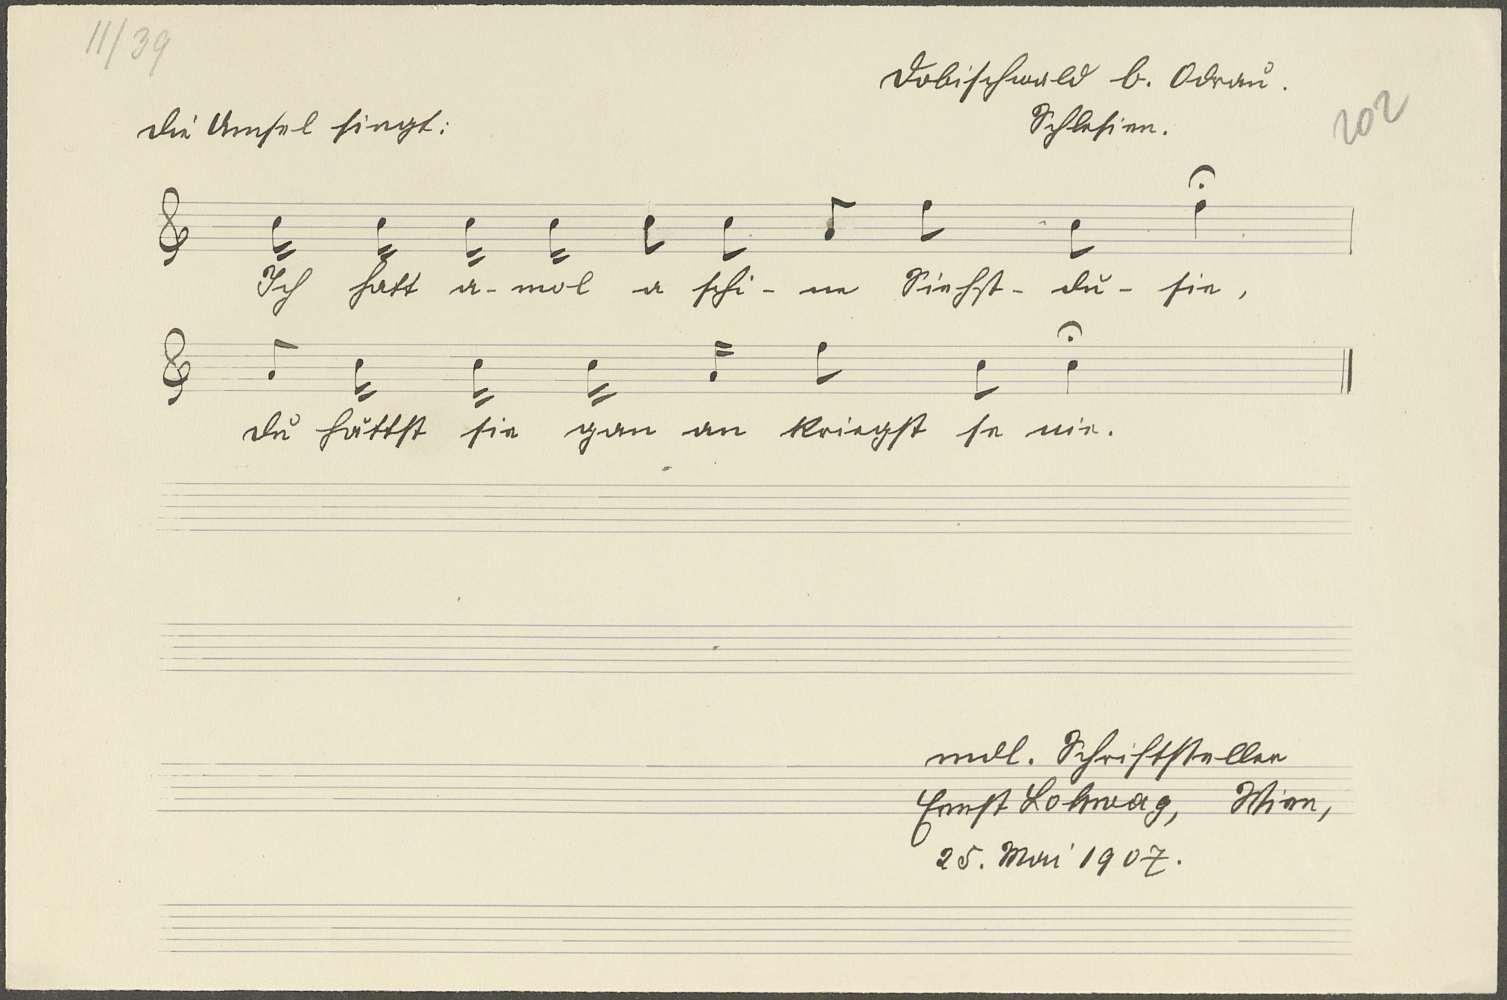 11/39
Dobischwald b. Odrau.
202
Die Amsel singt:
Schlesien.
Ich hatt a-mol a schi-ne Siehst-du-sie,
du hättst sie gan an kriegst se nie.
mdl. Schriftsteller
Ernst Lohwag, Wien,
25. Mai 1907.